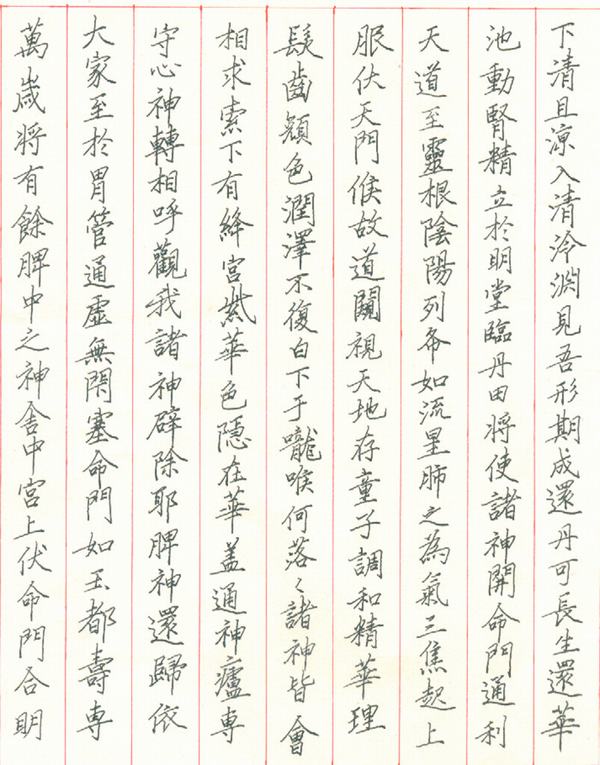 下清且涼入清泠淵見吾形期成還丹可長生還華
池動腎精立於明堂臨丹田將使諸神開命門通利
天道至靈根陰陽列布如流星肺之為氣三焦起上
服伏天門候故道闚視天地存童子調和精華理
髮齒顏色潤澤不復白下于嚨喉何落々諸神皆會
相求索下有絳宮紫華色隱在華蓋通神廬專
守心神轉相呼觀我諸神辟除耶脾神還歸依
大家至於胃管通虛無閉塞命門如玉都壽專
萬歲將有餘脾中之神舍中宮上伏命門合明